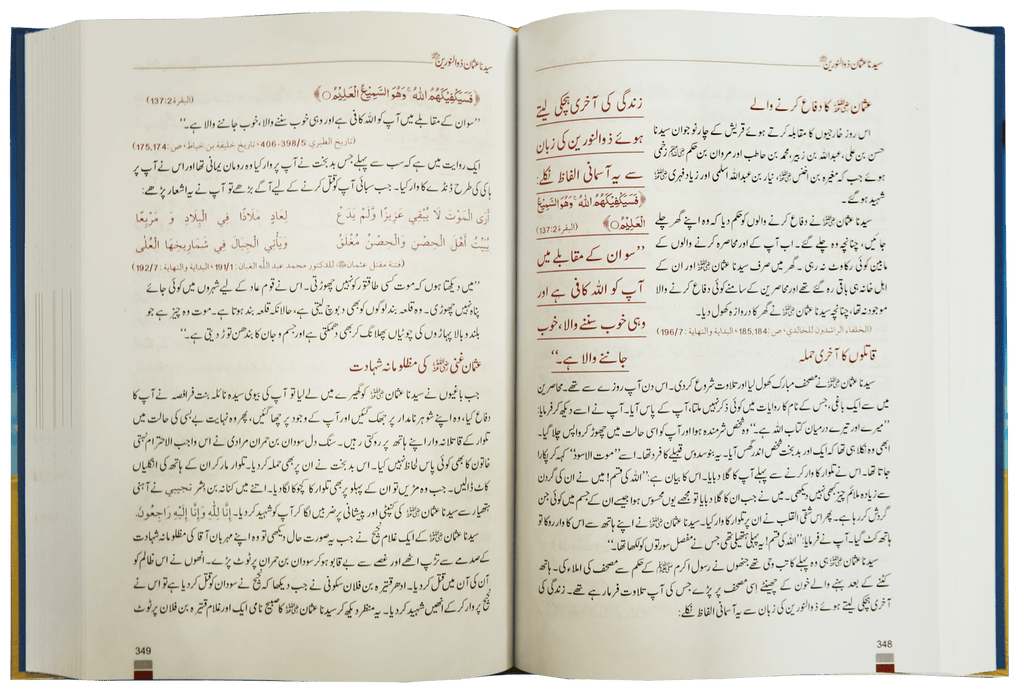 سیدنا عثمان ذوالنورین
عثمان رضی اللہ عنہ کا دفاع کرنے والے
اس روز خارجیوں کا مقابلہ کرتے ہوئے قریش کے چار نوجوان سیدنا
حسن بن علی، عبداللہ بن زبیر، محمد بن حاطب اور مروان بن حکم رضی اللہ عنہم زخمی
ہوئے جب کہ مغیرہ بن اخنس رضی اللہ عنہ، نیار بن عبداللہ اسلمی اور زیاد فہری رضی اللہ عنہم
شہید ہو گئے۔
سیدنا عثمان رضی اللہ عنہ نے دفاع کرنے والوں کو حکم دیا کہ وہ اپنے گھر چلے
جائیں، چنانچہ وہ چلے گئے۔ اب آپ کے اور محاصرہ کرنے والوں کے
مابین کوئی رکاوٹ نہ رہی۔ گھر میں صرف سیدنا عثمان رضی اللہ عنہ اور ان کے
اہل خانہ ہی باقی رہ گئے تھے اور محاصرین کے سامنے کوئی دفاع کرنے والا
موجود نہ تھا، چنانچہ سیدنا عثمان رضی اللہ عنہ نے گھر کا دروازہ کھول دیا۔
(الخلفاء الراشدون للخالدي، ص: 185,184، البداية والنهاية: 196/7)
قاتلوں کا آخری حملہ
زندگی کی آخری ہچکی لیتے
ہوئے ذوالنورین کی زبان
سے یہ آسمانی الفاظ نکلے:
﴿فَسَيَكْفِيكَهُمُ اللّٰهُ ۚ وَهُوَ السَّمِيعُ
الْعَلِيمُ﴾ (البقرة 137:2)
”سو ان کے مقابلے میں
آپ کو اللہ کافی ہے اور
وہی خوب سننے والا، خوب
جاننے والا ہے۔“
سیدنا عثمان رضی اللہ عنہ نے مصحف مبارک کھول لیا اور تلاوت شروع کر دی۔ اس دن آپ روزے سے تھے۔ محاصرین
میں سے ایک باغی، جس کے نام کا روایات میں کوئی ذکر نہیں ملتا، آپ کے پاس آیا۔ آپ نے اسے دیکھ کر فرمایا:
”میرے اور تیرے درمیان کتاب اللہ ہے۔“ وہ شخص شرمندہ ہوا اور آپ کو اسی حالت میں چھوڑ کر واپس چلا گیا۔
ابھی وہ نکلا ہی تھا کہ ایک اور بدبخت شخص اندر گھس آیا۔ یہ بنو سدوس قبیلے کا فرد تھا۔ اسے ”موت الاسود“ کہہ کر پکارا
جاتا تھا۔ اس نے تلوار کا وار کرنے سے پہلے آپ کا گلا دبایا۔ اس کا بیان ہے: ”اللہ کی قسم! میں نے ان کی گردن
سے زیادہ ملائم چیز کبھی نہیں دیکھی۔ میں نے جب ان کا گلا دبایا تو مجھے یوں محسوس ہوا جیسے ان کے جسم میں کوئی جن
گردش کر رہا ہے۔ پھر اس شقی القلب نے ان پر تلوار کا وار کیا۔ سیدنا عثمان رضی اللہ عنہ نے اپنے ہاتھ سے اس کا وار روکا تو
ہاتھ کٹ گیا۔ آپ نے فرمایا: ”اللہ کی قسم! یہ پہلی ہتھیلی تھی جس نے مفصل سورتوں کو لکھا تھا۔“
سیدنا عثمان رضی اللہ عنہ ہی وہ پہلے کاتب وحی تھے جنھوں نے رسول اکرم ﷺ کے حکم سے مصحف کی املاء کی۔ ہاتھ
کٹنے کے بعد بہنے والے خون کے چھینٹے اسی مصحف پر پڑے جس کی آپ تلاوت فرما رہے تھے۔ زندگی کی
آخری ہچکی لیتے ہوئے ذوالنورین کی زبان سے یہ آسمانی الفاظ نکلے:
348
سیدنا عثمان ذوالنورین
﴿فَسَيَكْفِيكَهُمُ اللّٰهُ ۚ وَهُوَ السَّمِيعُ الْعَلِيمُ﴾ (البقرة 137:2)
”سو ان کے مقابلے میں آپ کو اللہ کافی ہے اور وہی خوب سننے والا، خوب جاننے والا ہے۔“
(تاريخ الطبري 398/5-406، تاريخ خليفة بن خياط، ص: 175,174)
ایک روایت میں ہے کہ سب سے پہلے جس بدبخت نے آپ پر وار کیا وہ رومان یمانی تھا اور اس نے آپ پر
ہاکی کی طرح ڈنڈے کا وار کیا۔ جب سبائی آپ کو قتل کرنے کے لیے آگے بڑھے تو آپ نے یہ اشعار پڑھے:
أَرَى الْمَوْتَ لَا يُبْقِي عَزِيزًا وَلَمْ يَدَعْ لِعَادٍ مَلَاذًا فِي الْبِلَادِ وَ مَرْبَعًا
يُبَيِّتُ أَهْلَ الْحِصْنِ وَالْحِصْنُ مُغْلَقٌ وَيَأْتِي الْجِبَالَ فِي شَمَارِيخِهَا الْعُلَى
(فتنة مقتل عثمان للدكتور محمد عبد الله الغبان: 191/1، البداية والنهاية: 192/7)
”میں دیکھتا ہوں کہ موت کسی طاقتور کو نہیں چھوڑتی۔ اس نے قوم عاد کے لیے شہروں میں کوئی جائے
پناہ نہیں چھوڑی۔ وہ قلعہ بند لوگوں کو بھی دبوچ لیتی ہے، حالانکہ قلعہ بند ہوتا ہے۔ موت وہ چیز ہے جو
بلند و بالا پہاڑوں کی چوٹیاں پھلانگ کر بھی آ دھمکتی ہے اور جسم و جان کا بندھن توڑ دیتی ہے۔“
عثمان غنی رضی اللہ عنہ کی مظلومانہ شہادت
جب باغیوں نے سیدنا عثمان رضی اللہ عنہ کو گھیرے میں لے لیا تو آپ کی بیوی سیدہ نائلہ بنت فرافصہ نے آپ کا
دفاع کیا، وہ اپنے شوہر نامدار پر جھک گئیں اور آپ کے وجود پر چھا گئیں، پھر وہ نہایت بے بسی کی حالت میں
تلوار کے قاتلانہ وار اپنے ہاتھ پر روکتی رہیں۔ سنگ دل سودان بن حمران مرادی نے اس واجب الاحترام نہتی
خاتون کا بھی کوئی پاس لحاظ نہیں کیا۔ اس بدبخت نے ان پر بھی حملہ کر دیا۔ تلوار مار کر ان کے ہاتھ کی انگلیاں
کاٹ ڈالیں۔ جب وہ مڑیں تو ان کے پہلو پر بھی تلوار کا کچوکا لگا دیا۔ اتنے میں کنانہ بن بشر تجیبی نے آہنی
ہتھیار سے سیدنا عثمان رضی اللہ عنہ کی کنپٹی اور پیشانی پر ضربیں لگا کر آپ کو شہید کر دیا۔ إِنَّا لِلّٰهِ وَإِنَّا إِلَيْهِ رَاجِعُونَ.
سیدنا عثمان رضی اللہ عنہ کے ایک غلام نجیح نے جب یہ صورت حال دیکھی تو وہ اپنے مہربان آقا کی مظلومانہ شہادت
کے صدمے سے تڑپ اٹھے اور غصے سے بے قابو ہو کر سودان بن حمران پر ٹوٹ پڑے۔ انھوں نے اس ظالم کو
آن کی آن میں قتل کر دیا۔ ادھر قتیرہ بن فلان سکونی نے جب دیکھا کہ نجیح نے سودان کو قتل کر دیا ہے تو اس نے
نجیح پر وار کر کے انھیں شہید کر دیا۔ یہ منظر دیکھ کر سیدنا عثمان رضی اللہ عنہ کا صبیح نامی ایک اور غلام قتیرہ بن فلان پر ٹوٹ
349